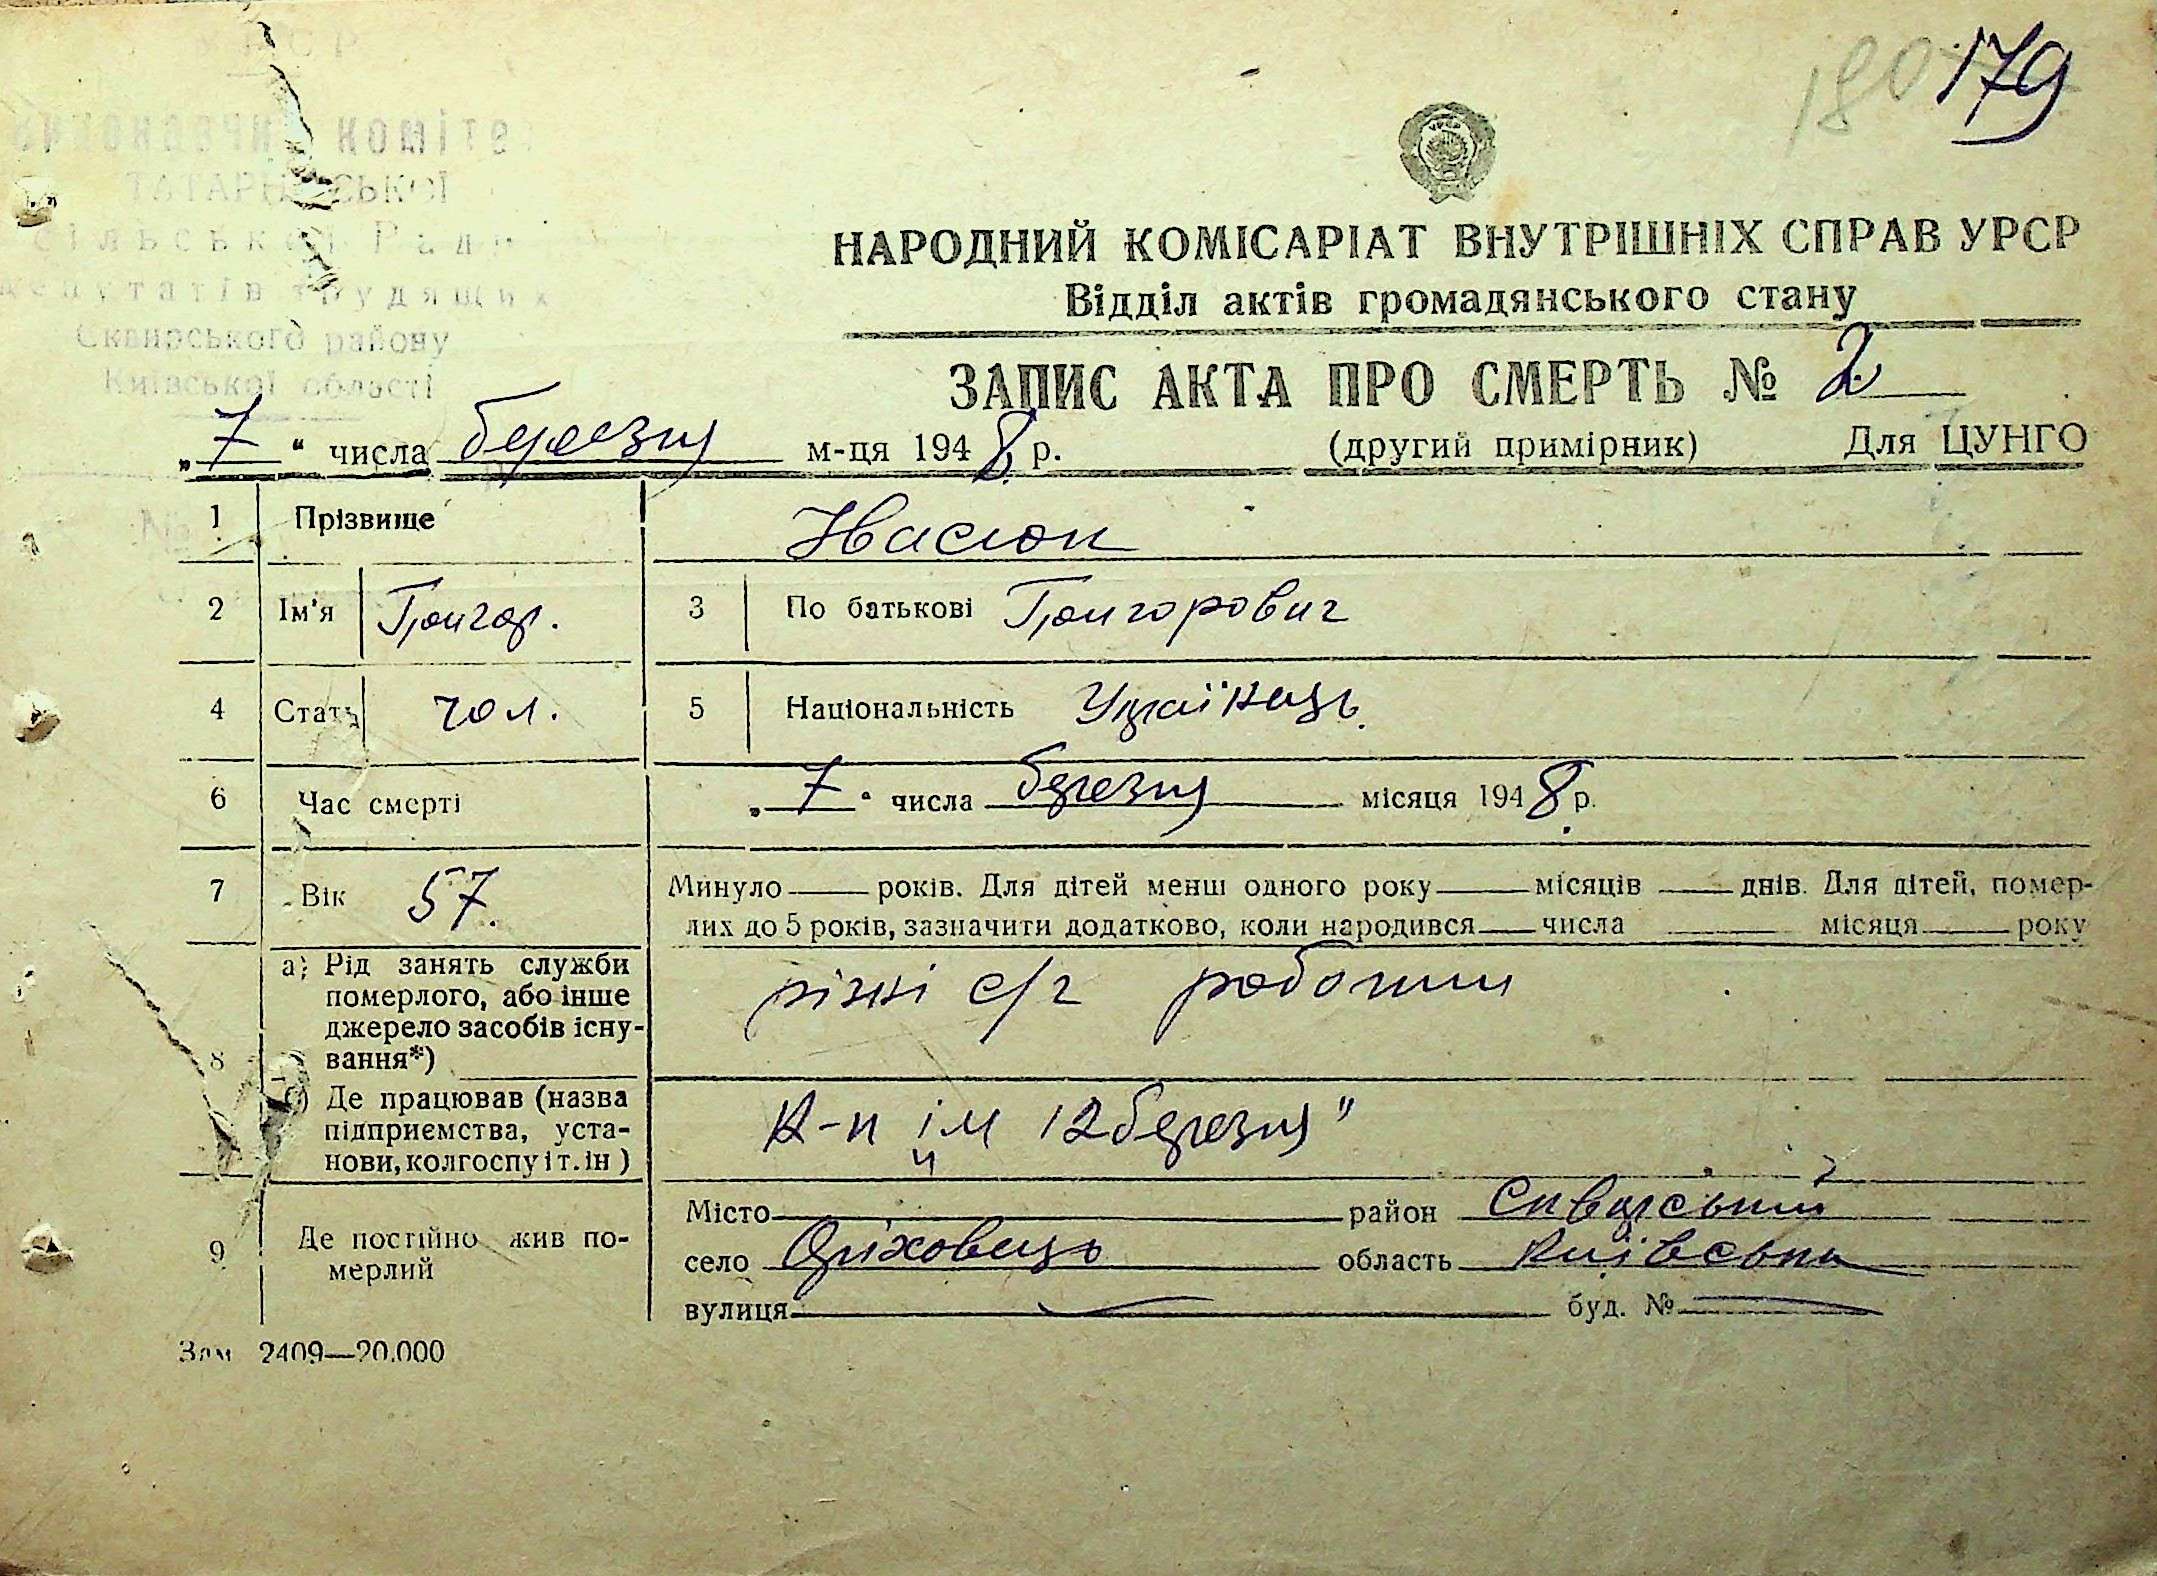 179
180
УРСР
Виконавчий комітет
ТАТАРИНІВСЬКОЇ
Сільської Ради
депутатів трудящих
Сквирського району
Київської області
НАРОДНИЙ КОМІСАРІАТ ВНУТРІШНІХ СПРАВ УРСР
Відділ актів громадянського стану
ЗАПИС АКТА ПРО СМЕРТЬ № 2
„7“ числа березня м-ця 1948 р. (другий примірник) Для ЦУНГО
1 Прізвище Івасюк
2 Ім'я Григор. 3 По батькові Григорович
4 Стать чол. 5 Національність Українець
6 Час смерті „7“ числа березня місяця 1948 р.
7 Вік 57. Минуло років. Для дітей менш одного року місяців днів. Для дітей, помер-
лих до 5 років, зазначити додатково, коли народився числа місяця року
8 а) Рід занять служби
померлого, або інше
джерело засобів існу-
вання*)
різні с/г роботи
б) Де працював (назва
підприємства, уста-
нови, колгоспу і т. ін)
К-п ім „12 березня"
9 Де постійно жив по-
мерлий
Місто район Сквирський
село Оріховець область Київська
вулиця буд. №
Зам 2409—20.000